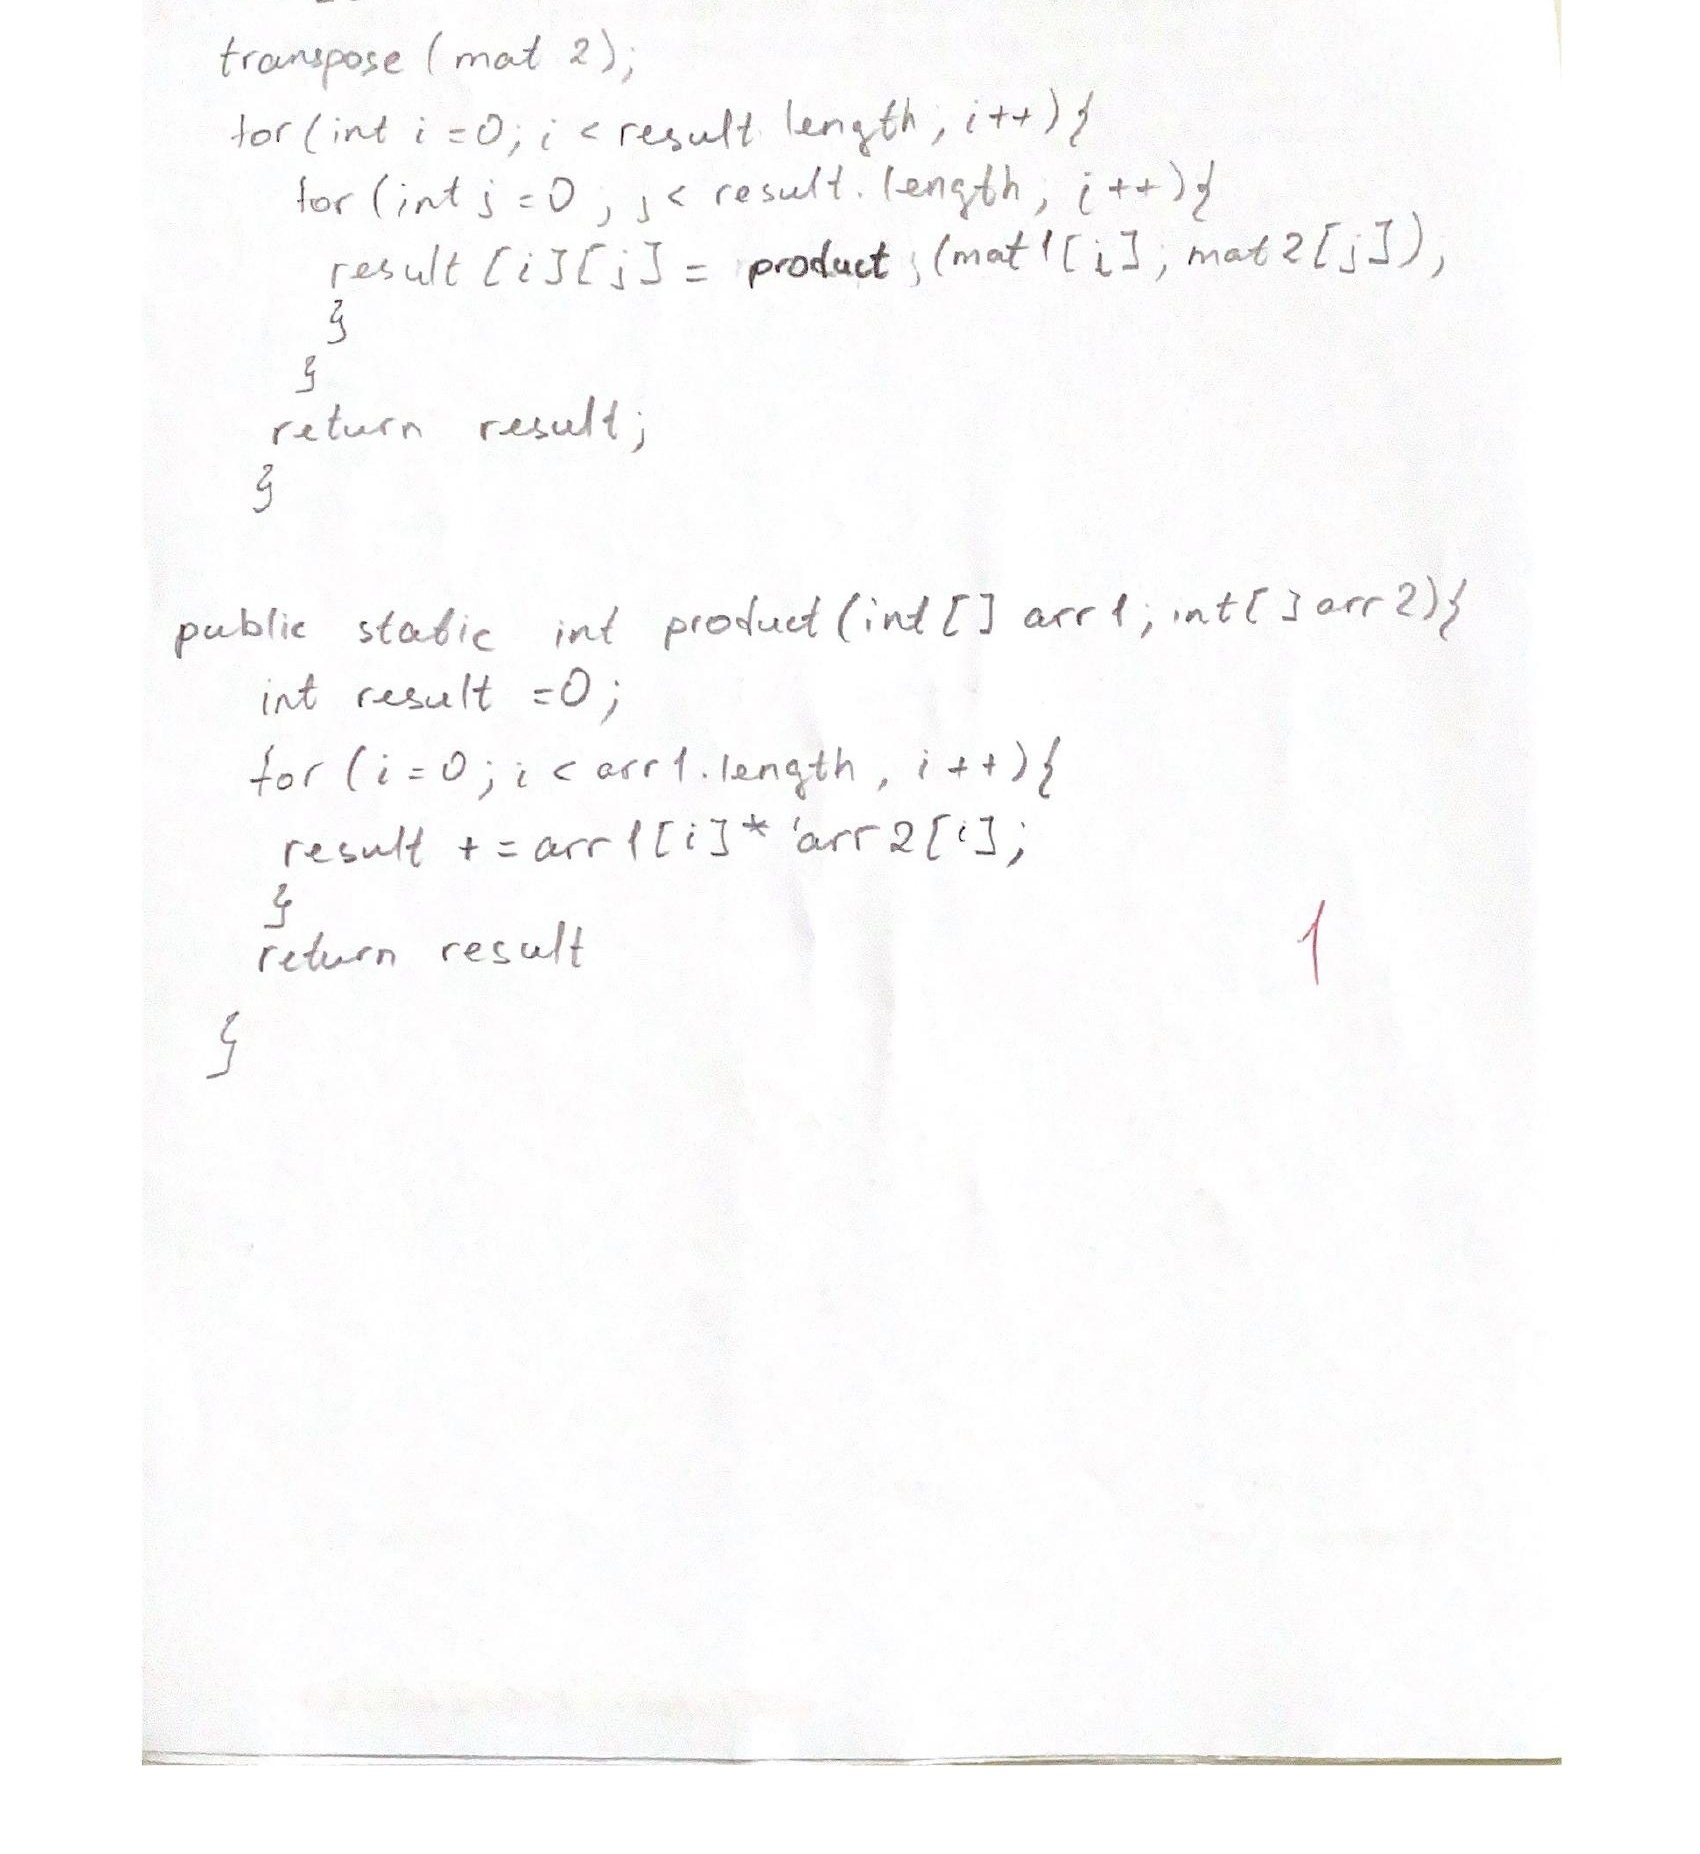 transpose (mat 2);
for (int i = 0; i < result length, i++) {
for (int j = 0, j < result. length, i ++) {
result [i][j] = product, (mat1[i]; mat2[j]),
}
}
return result;
}
public static int product (int [] arr1; int [] arr2) {
int result = 0;
for (i = 0; i < arr1.length, i ++) {
result += arr1[i] * arr2[i];
}
return result
}
1